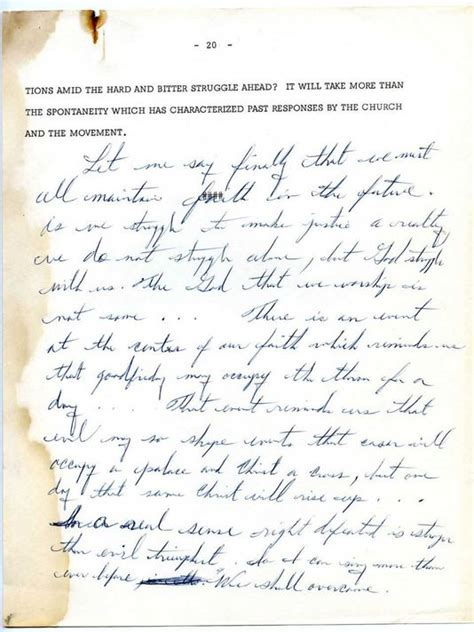 - 20 -
TIONS AMID THE HARD AND BITTER STRUGGLE AHEAD? IT WILL TAKE MORE THAN
THE SPONTANEITY WHICH HAS CHARACTERIZED PAST RESPONSES BY THE CHURCH
AND THE MOVEMENT.
Let me say finally that we must
all maintain faith in the future.
As we struggle to make justice a reality
we do not struggle alone, but God struggle
with us. The God that we worship is
not some .... There is an event
at the center of our faith which reminds us
that goodfriday may occupy the throne for a
day .... That event reminds us that
evil may so shape events that caesar will
occupy a palace and Christ a cross, but one
day that same Christ will rise up ....
In a real sense right defeated is stronger
than evil triumphant. So I can sing more than
ever before "We shall overcome.